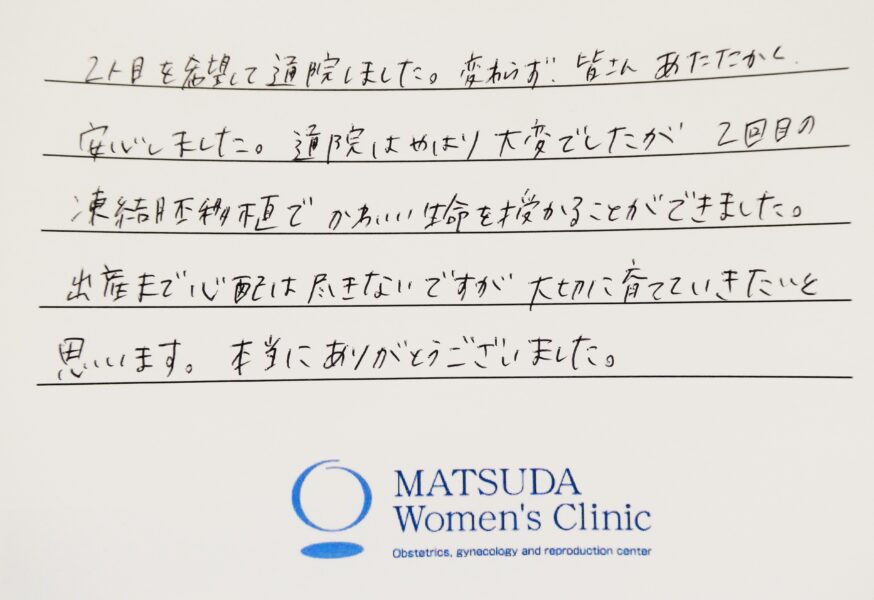 2人目を希望して通院しました。変わらず、皆さん あたたかく、
安心しました。通院はやはり大変でしたが 2回目の
凍結胚移植で かわいい生命を授かることができました。
出産まで心配は尽きないですが 大切に育てていきたいと
思います。本当にありがとうございました。
MATSUDA
Women's Clinic
Obstetrics, gynecology and reproduction center